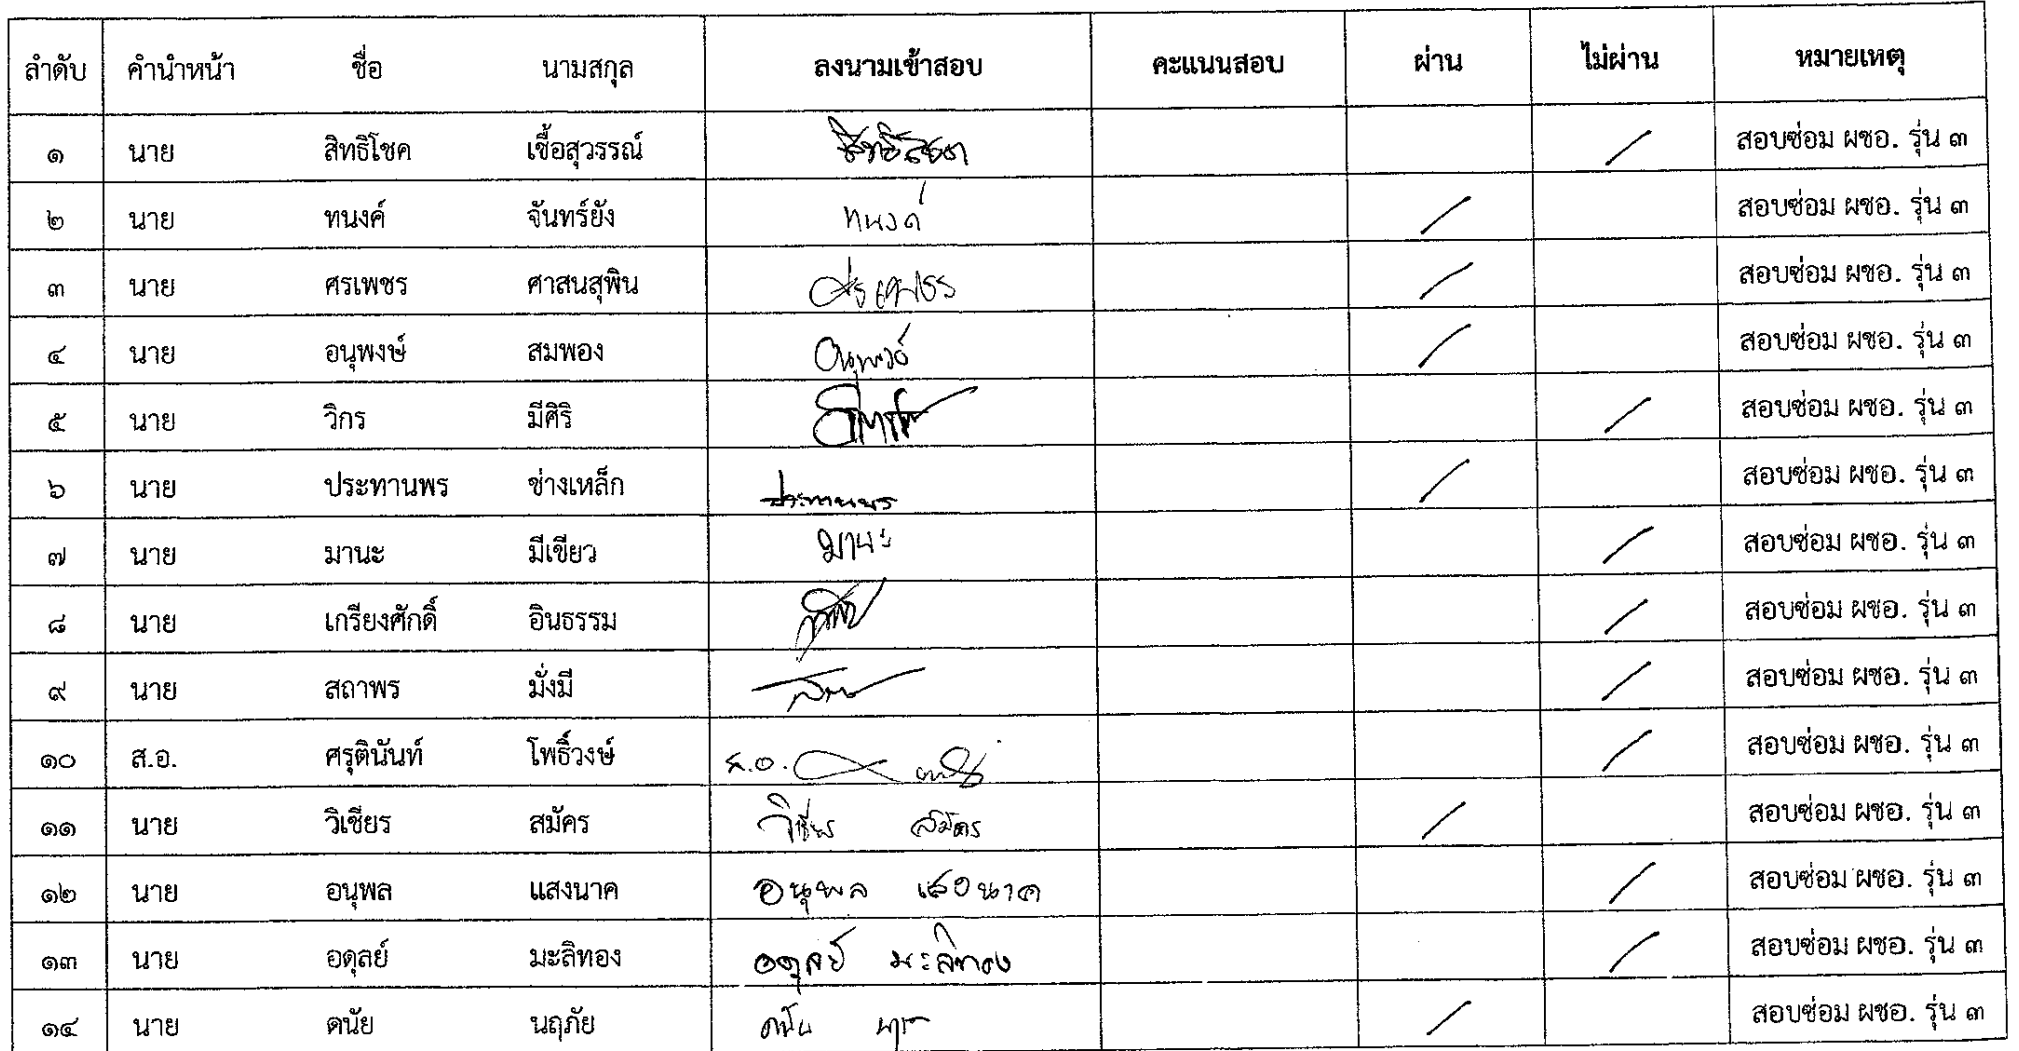 ลำดับ คำนำหน้า ชื่อ นามสกุล ลงนามเข้าสอบ คะแนนสอบ ผ่าน ไม่ผ่าน หมายเหตุ
๑ นาย สิทธิโชค เชื้อสุวรรณ์ สิทธิโชค / สอบซ่อม ผชอ. รุ่น ๓
๒ นาย ทนงค์ จันทร์ยัง ทนงค์ / สอบซ่อม ผชอ. รุ่น ๓
๓ นาย ศรเพชร ศาสนสุพิน ศรเพชร / สอบซ่อม ผชอ. รุ่น ๓
๔ นาย อนุพงษ์ สมพอง อนุพงษ์ / สอบซ่อม ผชอ. รุ่น ๓
๕ นาย วิกร มีศิริ / สอบซ่อม ผชอ. รุ่น ๓
๖ นาย ประทานพร ช่างเหล็ก ประทานพร / สอบซ่อม ผชอ. รุ่น ๓
๗ นาย มานะ มีเขียว มานะ / สอบซ่อม ผชอ. รุ่น ๓
๘ นาย เกรียงศักดิ์ อินธรรม / สอบซ่อม ผชอ. รุ่น ๓
๙ นาย สถาพร มั่งมี / สอบซ่อม ผชอ. รุ่น ๓
๑๐ ส.อ. ศรุตินันท์ โพธิ์วงษ์ ส.อ. / สอบซ่อม ผชอ. รุ่น ๓
๑๑ นาย วิเชียร สมัคร วิเชียร สมัคร / สอบซ่อม ผชอ. รุ่น ๓
๑๒ นาย อนุพล แสงนาค อนุพล แสงนาค / สอบซ่อม ผชอ. รุ่น ๓
๑๓ นาย อดุลย์ มะลิทอง อดุลย์ มะลิทอง / สอบซ่อม ผชอ. รุ่น ๓
๑๔ นาย ดนัย นฤภัย ดนัย / สอบซ่อม ผชอ. รุ่น ๓